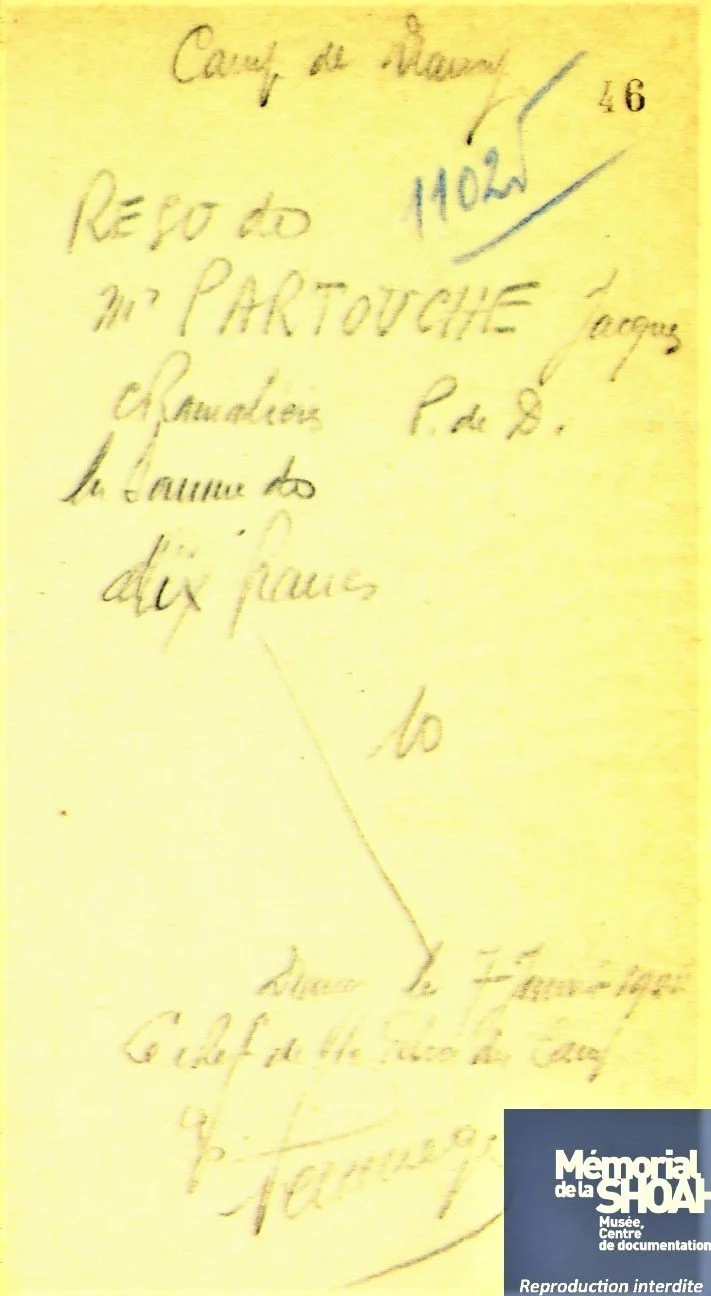 Camp de Drancy
46
11025
RESU de
Mr PARTOUCHE Jacques
Chamalières P. de D.
la somme de
dix francs
10
Drancy le 7 Janvier
Le chef de du Camp
Mémorial
de la SHOAH
Musée,
Centre
de documentation
Reproduction interdite